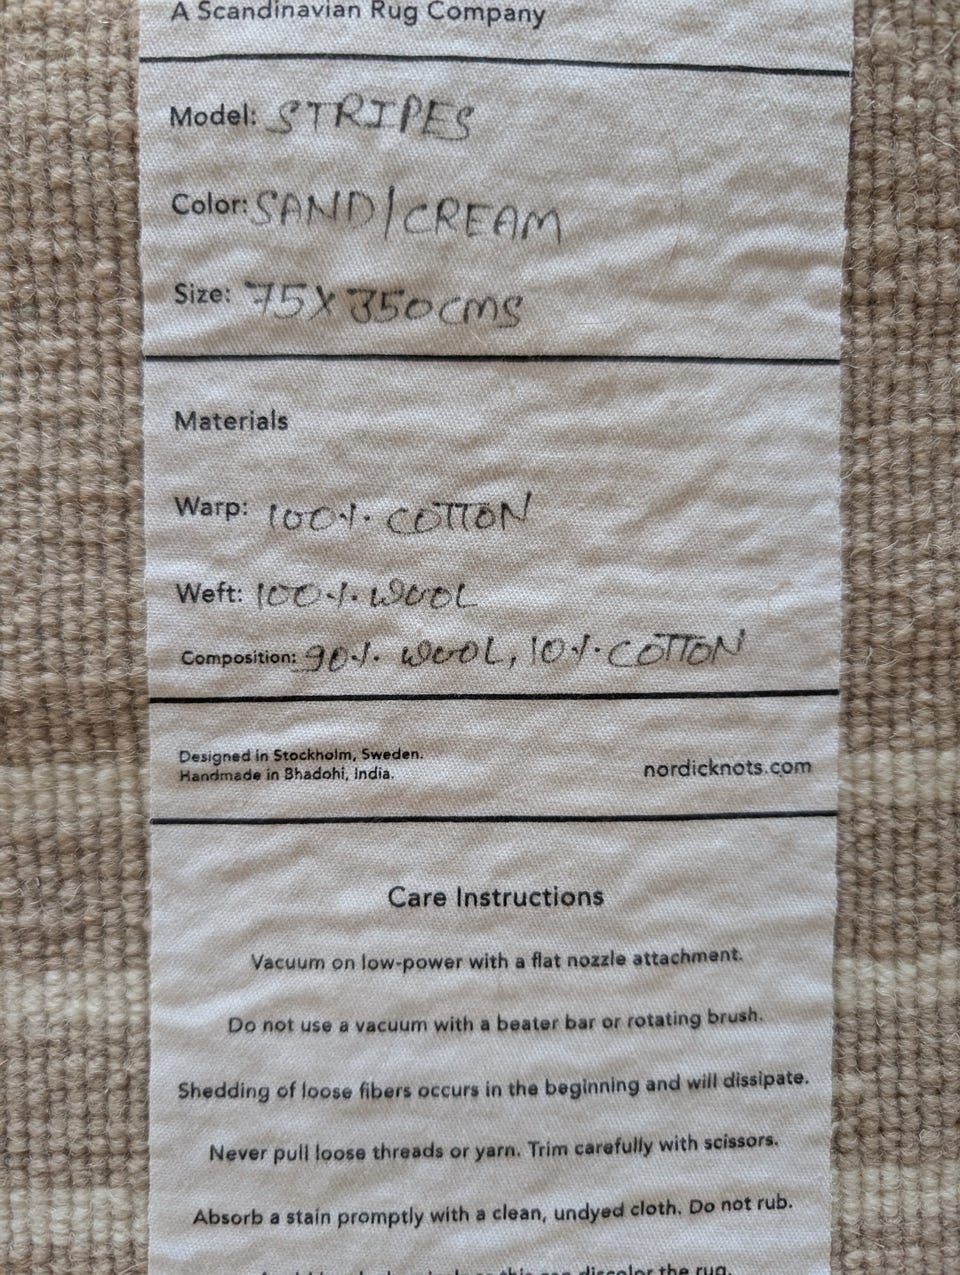 A Scandinavian Rug Company
Model: STRIPES
Color: SAND/CREAM
Size: 75X350CMS
Materials
Warp: 100% COTTON
Weft: 100% WOOL
Composition: 90% WOOL, 10% COTTON
Designed in Stockholm, Sweden.
Handmade in Bhadohi, India.
nordicknots.com
Care Instructions
Vacuum on low-power with a flat nozzle attachment.
Do not use a vacuum with a beater bar or rotating brush.
Shedding of loose fibers occurs in the beginning and will dissipate.
Never pull loose threads or yarn. Trim carefully with scissors.
Absorb a stain promptly with a clean, undyed cloth. Do not rub.
this can discolor the rug.